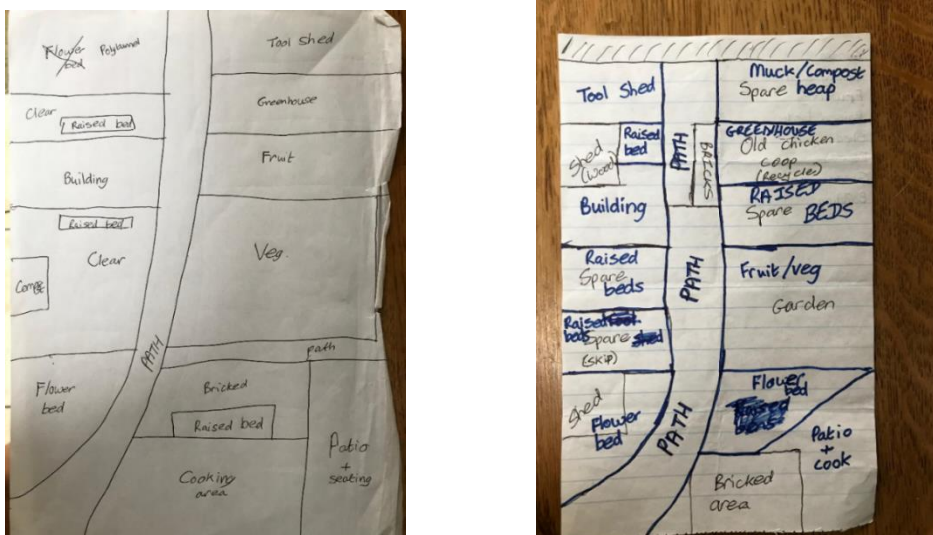 Flower bed
Polytunnel
Tool Shed
Clear
Raised bed
Greenhouse
Fruit
Building
Raised bed
Clear
Veg.
PATH
path
Flower
bed
Bricked
Raised bed
Cooking
area
Patio
+
seating
Tool Shed
Muck/Compost
Spare heap
Shed
(Wood)
Raised
bed
PATH
BRICKS
GREENHOUSE
Old chicken
coop
(Recycled)
Building
RAISED
Spare BEDS
Raised
Spare
beds
PATH
Fruit/veg
Garden
Raised
beds Spare shed
(skip)
Shed
Flower
bed
PATH
Flower
bed
Patio
+
cook
Bricked
area